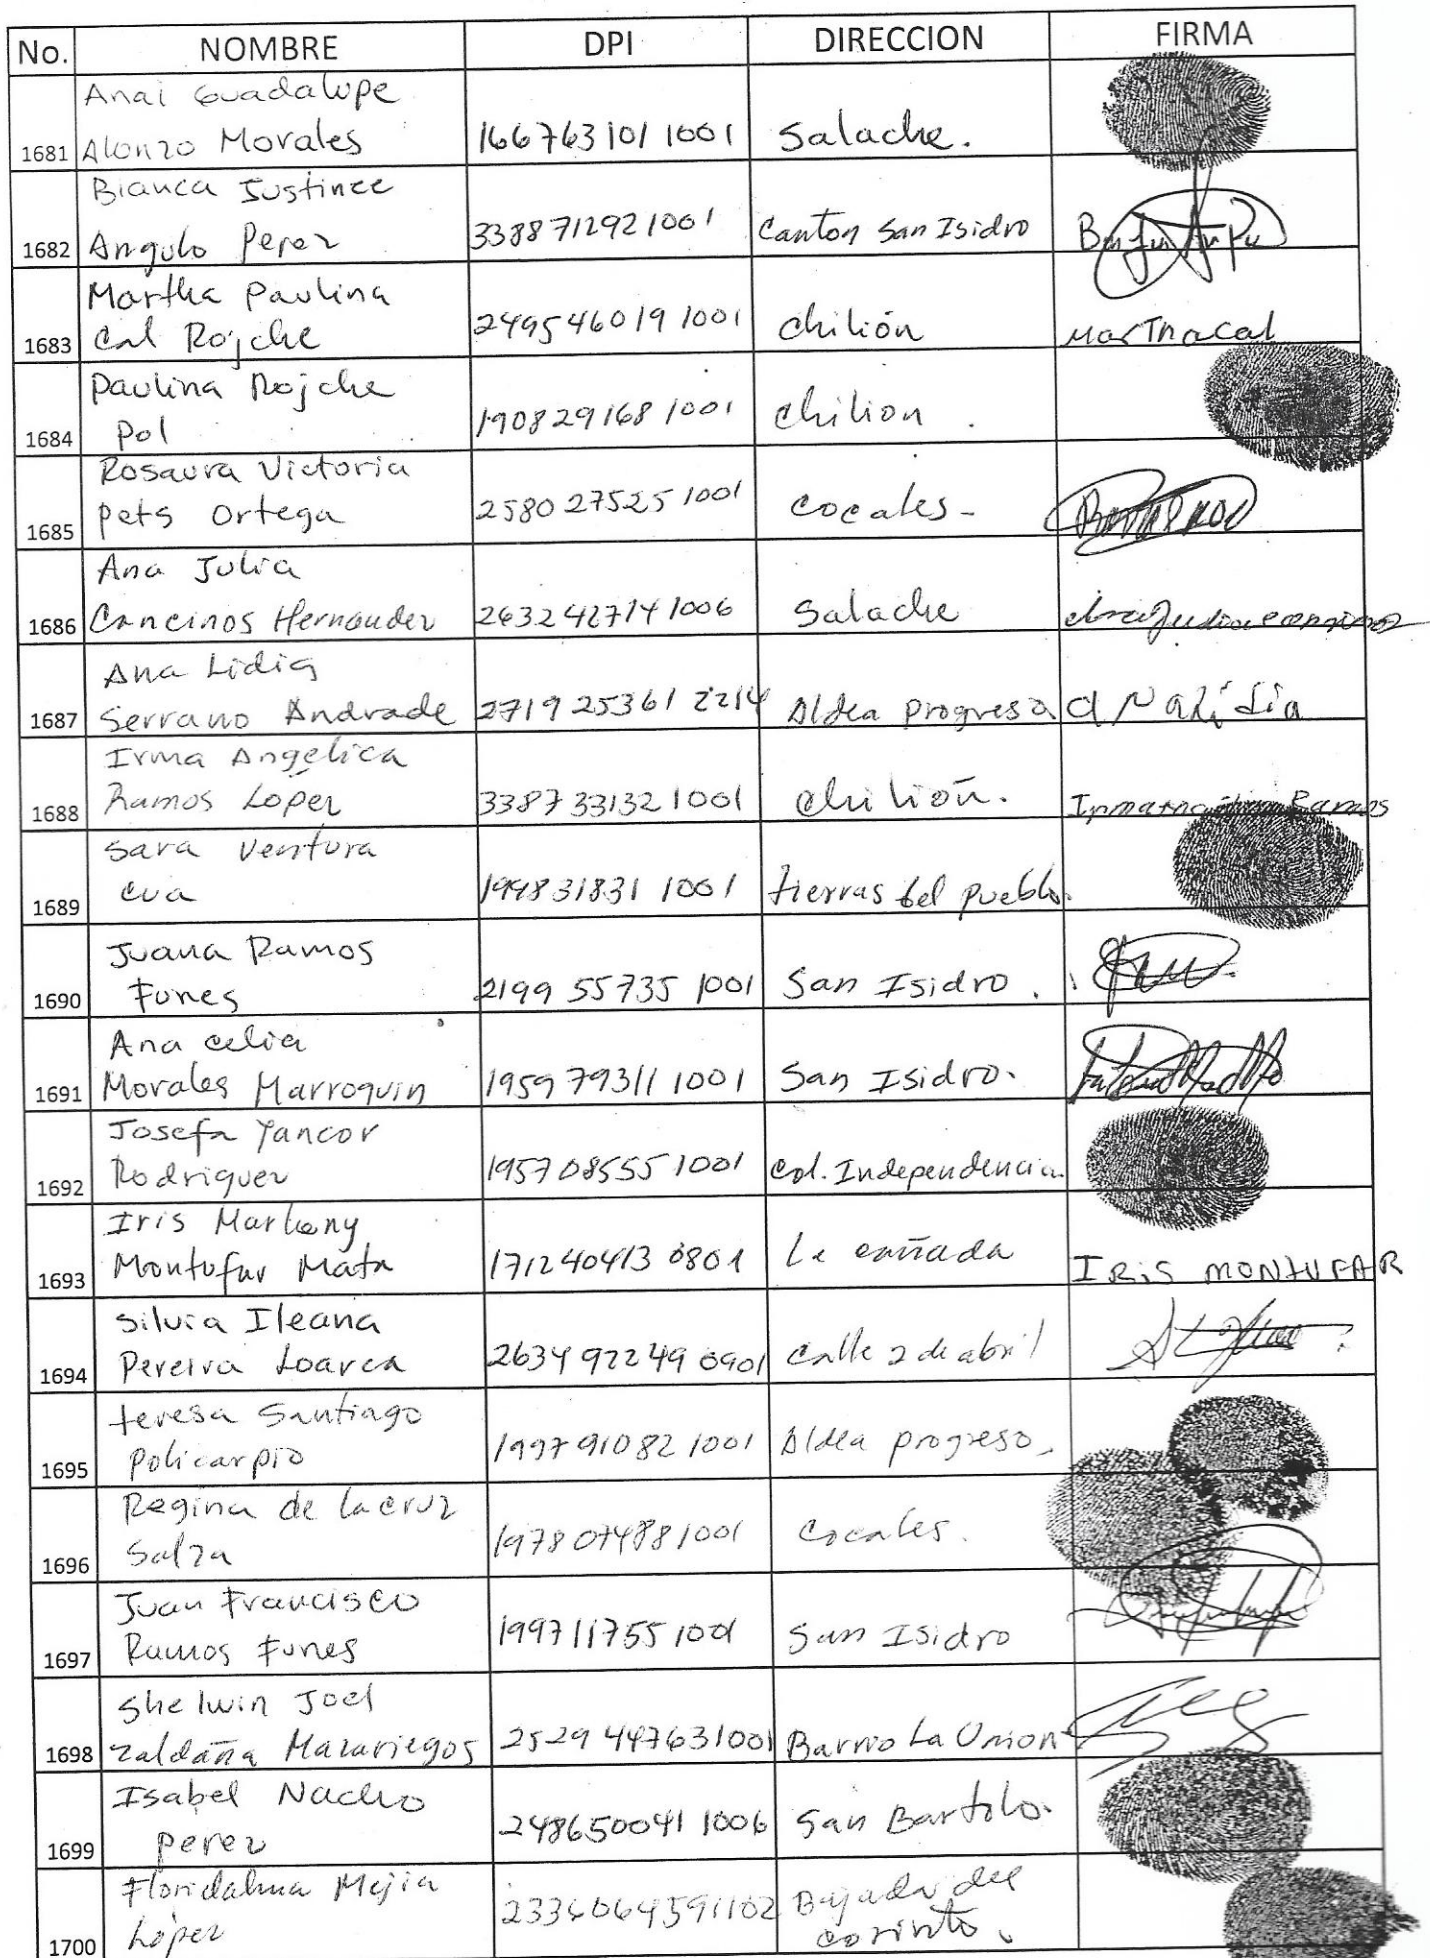 No. NOMBRE DPI DIRECCION FIRMA
Anai Guadalupe
1681 Alonzo Morales 166763101 1001 Salache.
Bianca Justinee
1682 Angulo Perez 338871292 1001 Canton San Isidro
Martha Paulina
1683 Cal Rojche 249546019 1001 Chilión MarThacal
Paulina Rojche
1684 Pol 190829168 1001 Chilion.
Rosaura Victoria
1685 Pets Ortega 258027525 1001 Cocales-
Ana Julia
1686 Cancinos Hernandez 263242714 1006 Salache
Ana Lidia
1687 Serrano Andrade 271925361 2214 Aldea progreso aNalidia
Irma Angelica
1688 Ramos López 338733132 1001 Chilión. Ramos
Sara Ventura
1689 Cua 199831831 1001 tierras del pueblo.
Juana Ramos
1690 Funes 2199 55735 1001 San Isidro.
Ana Celia
1691 Morales Marroquin 195979311 1001 San Isidro.
Josefa Yancor
1692 Rodriguez 195708555 1001 Col. Independencia.
Iris Marleny
1693 Montufar Mata 171240413 0801 La cañada IRiS MONTUFAR
Silvia Ileana
1694 Pereira Loarca 263492249 0901 Calle 2 de abril
teresa Santiago
1695 Policarpio 199791082 1001 Aldea progreso.
Regina de la cruz
1696 Salza 197807488 1001 Cocales.
Juan Francisco
1697 Ramos Funes 199711755 1001 San Isidro
Shelwin Joel
1698 Zaldaña Mazariegos 2529 44763 1001 Barrio La Union
Isabel Nacho
1699 perez 248650041 1006 San Bartolo.
Floridalma Mejia Bajada del
1700 López 233606459 1102 corinto.